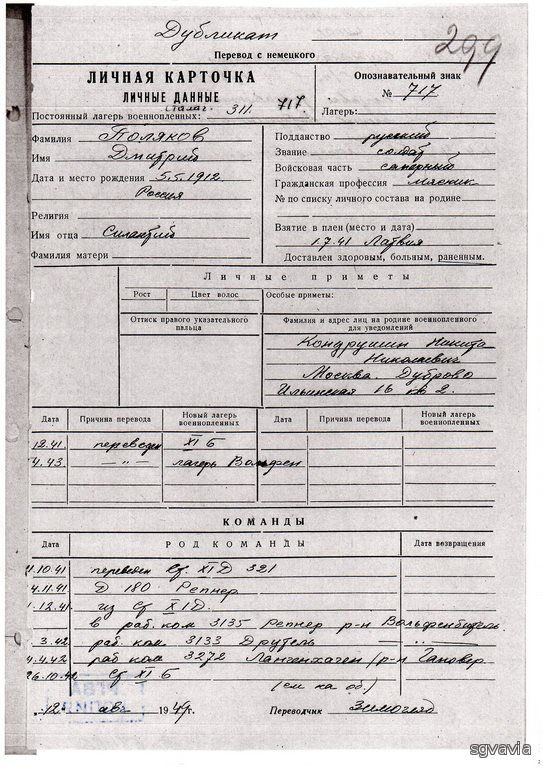 Дубликат
299
Перевод с немецкого
ЛИЧНАЯ КАРТОЧКА
ЛИЧНЫЕ ДАННЫЕ
Опознавательный знак
№ 717
Сталаг
Постоянный лагерь военнопленных: 311. 717.
Лагерь:
Фамилия Поляков
Имя Дмитрий
Дата и место рождения 5.5.1912
Россия
Религия
Имя отца Силантий
Фамилия матери
Подданство русский
Звание солдат
Войсковая часть саперный
Гражданская профессия мясник
№ по списку личного состава на родине
Взятие в плен (место и дата)
1.7.41 Латвия
Доставлен здоровым, больным, раненным.
Личные приметы
Рост Цвет волос Особые приметы:
Оттиск правого указательного
пальца
Фамилия и адрес лиц на родине военнопленного
для уведомлений
Кондрушин Никита
Николаевич
Москва. Дуброво
Ильинская 16 кв 2.
Дата Причина перевода Новый лагерь военнопленных Дата Причина перевода Новый лагерь военнопленных
12.41. переведен XI Б
4.43. —〃— лагерь Вольфен
КОМАНДЫ
Дата РОД КОМАНДЫ Дата возвращения
1.10.41 переведен Сф. XI D 321
4.11.41 D 180 Репнер
1.12.41 из Сф XI D.
в раб.ком 3135 Репнер р-н Вольфенбютель
3.42 раб. ком 3133 Друтель —〃—
4.4.42 раб ком 3272 Лангенхаген /р-н Ганновер
26.10.42 Сф XI Б
(см на об.)
"12" авг 1949 г.
Переводчик
sgvavia